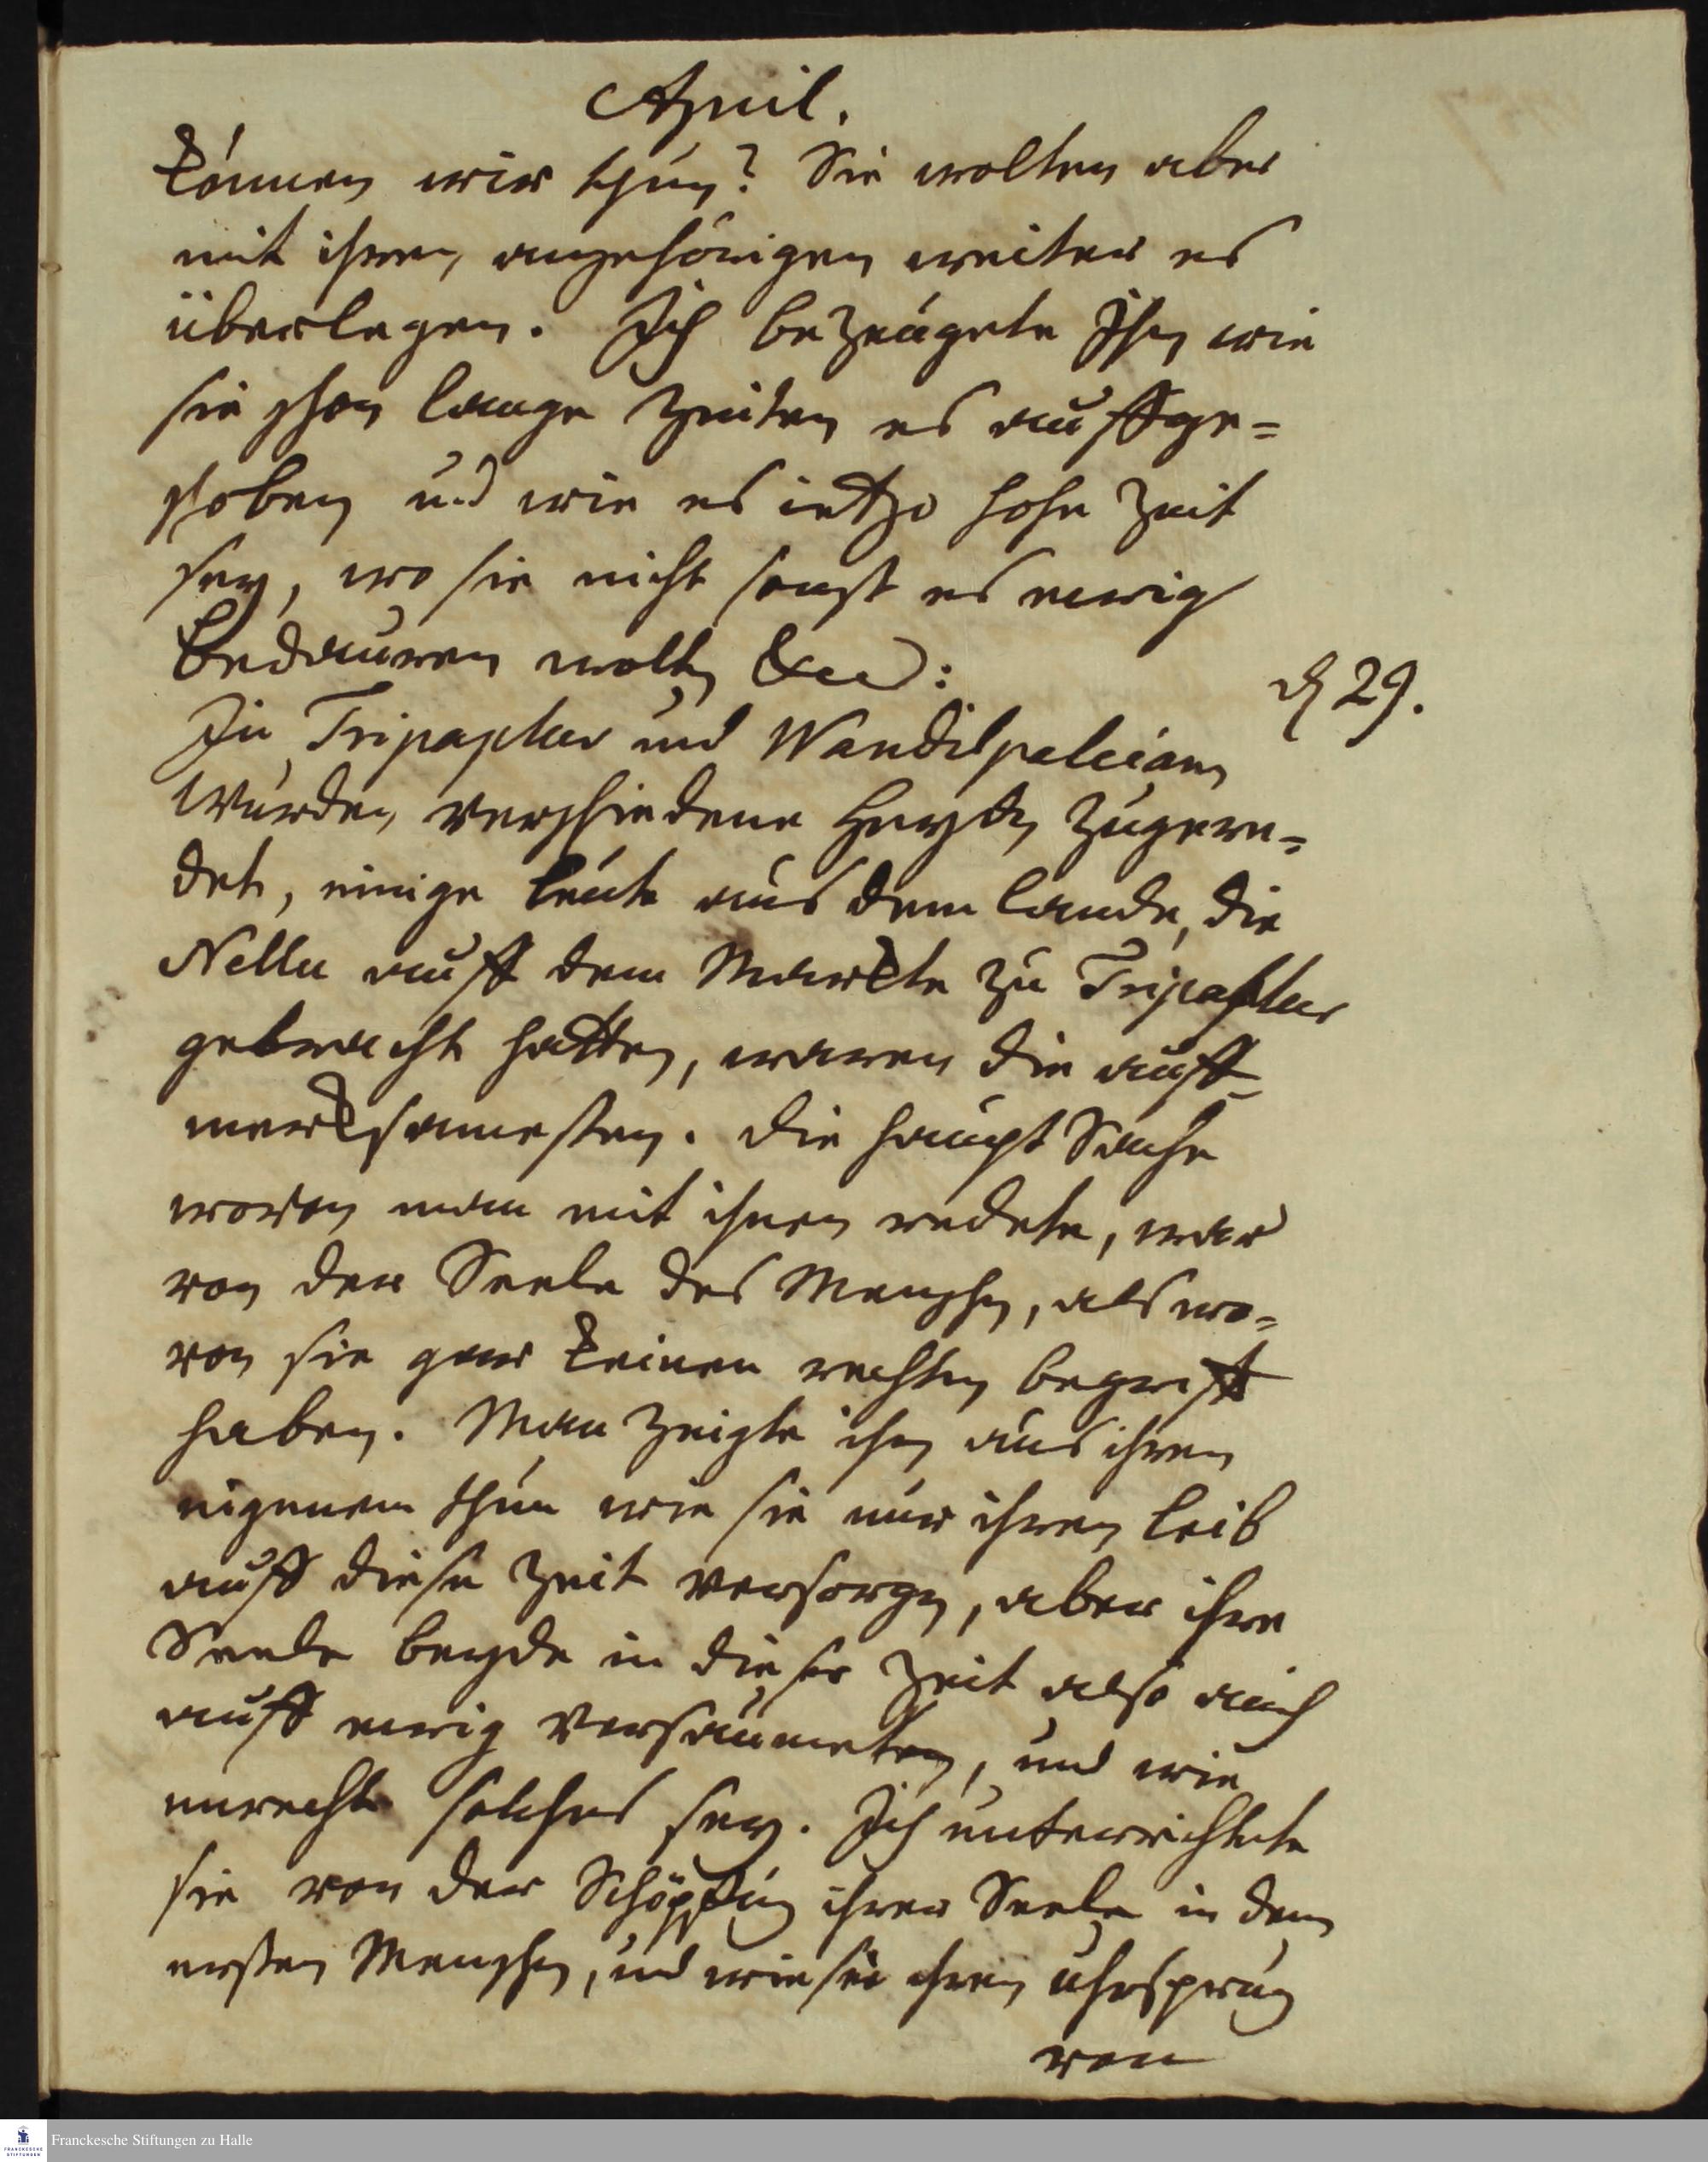 April.
können wir thun? Sie wolten aber
mit ihren angehörigen weiter es
überlegen. Ich bezeugete Ihn wie
sie schon lange Zeiten es auffge=
schoben und wie es ietzo hohe Zeit
sey, wo sie nicht sonst es ewig
bedauren wolten
d 29.
In Tripapelur und Wandilpaleiam
wurden verschiedene Heyden zugere=
det, einige Leute aus dem Lande, die
Nellu auff dem Marckte zu Tripapelur
gebracht hatten, waren die auff=
mercksamesten. Die haupt Sache
wovon man mit ihnen redete, war
von der Seele des Menschen, als wo=
von sie gar keinen rechten begriff
haben. Man zeigte ihn aus ihren
eigenem thun wie sie nur ihren Leib
auff diese Zeit versorgen, aber ihre
Seele beyde in dieser Zeit also auch
auff ewig versäumeten, und wie
unrecht solches sey. Ich unterrichtete
sie von der Schöpffung ihrer Seele in dem
ersten Menschen, und wie sie ihren Uhrsprung
von
Franckesche Stiftungen zu Halle